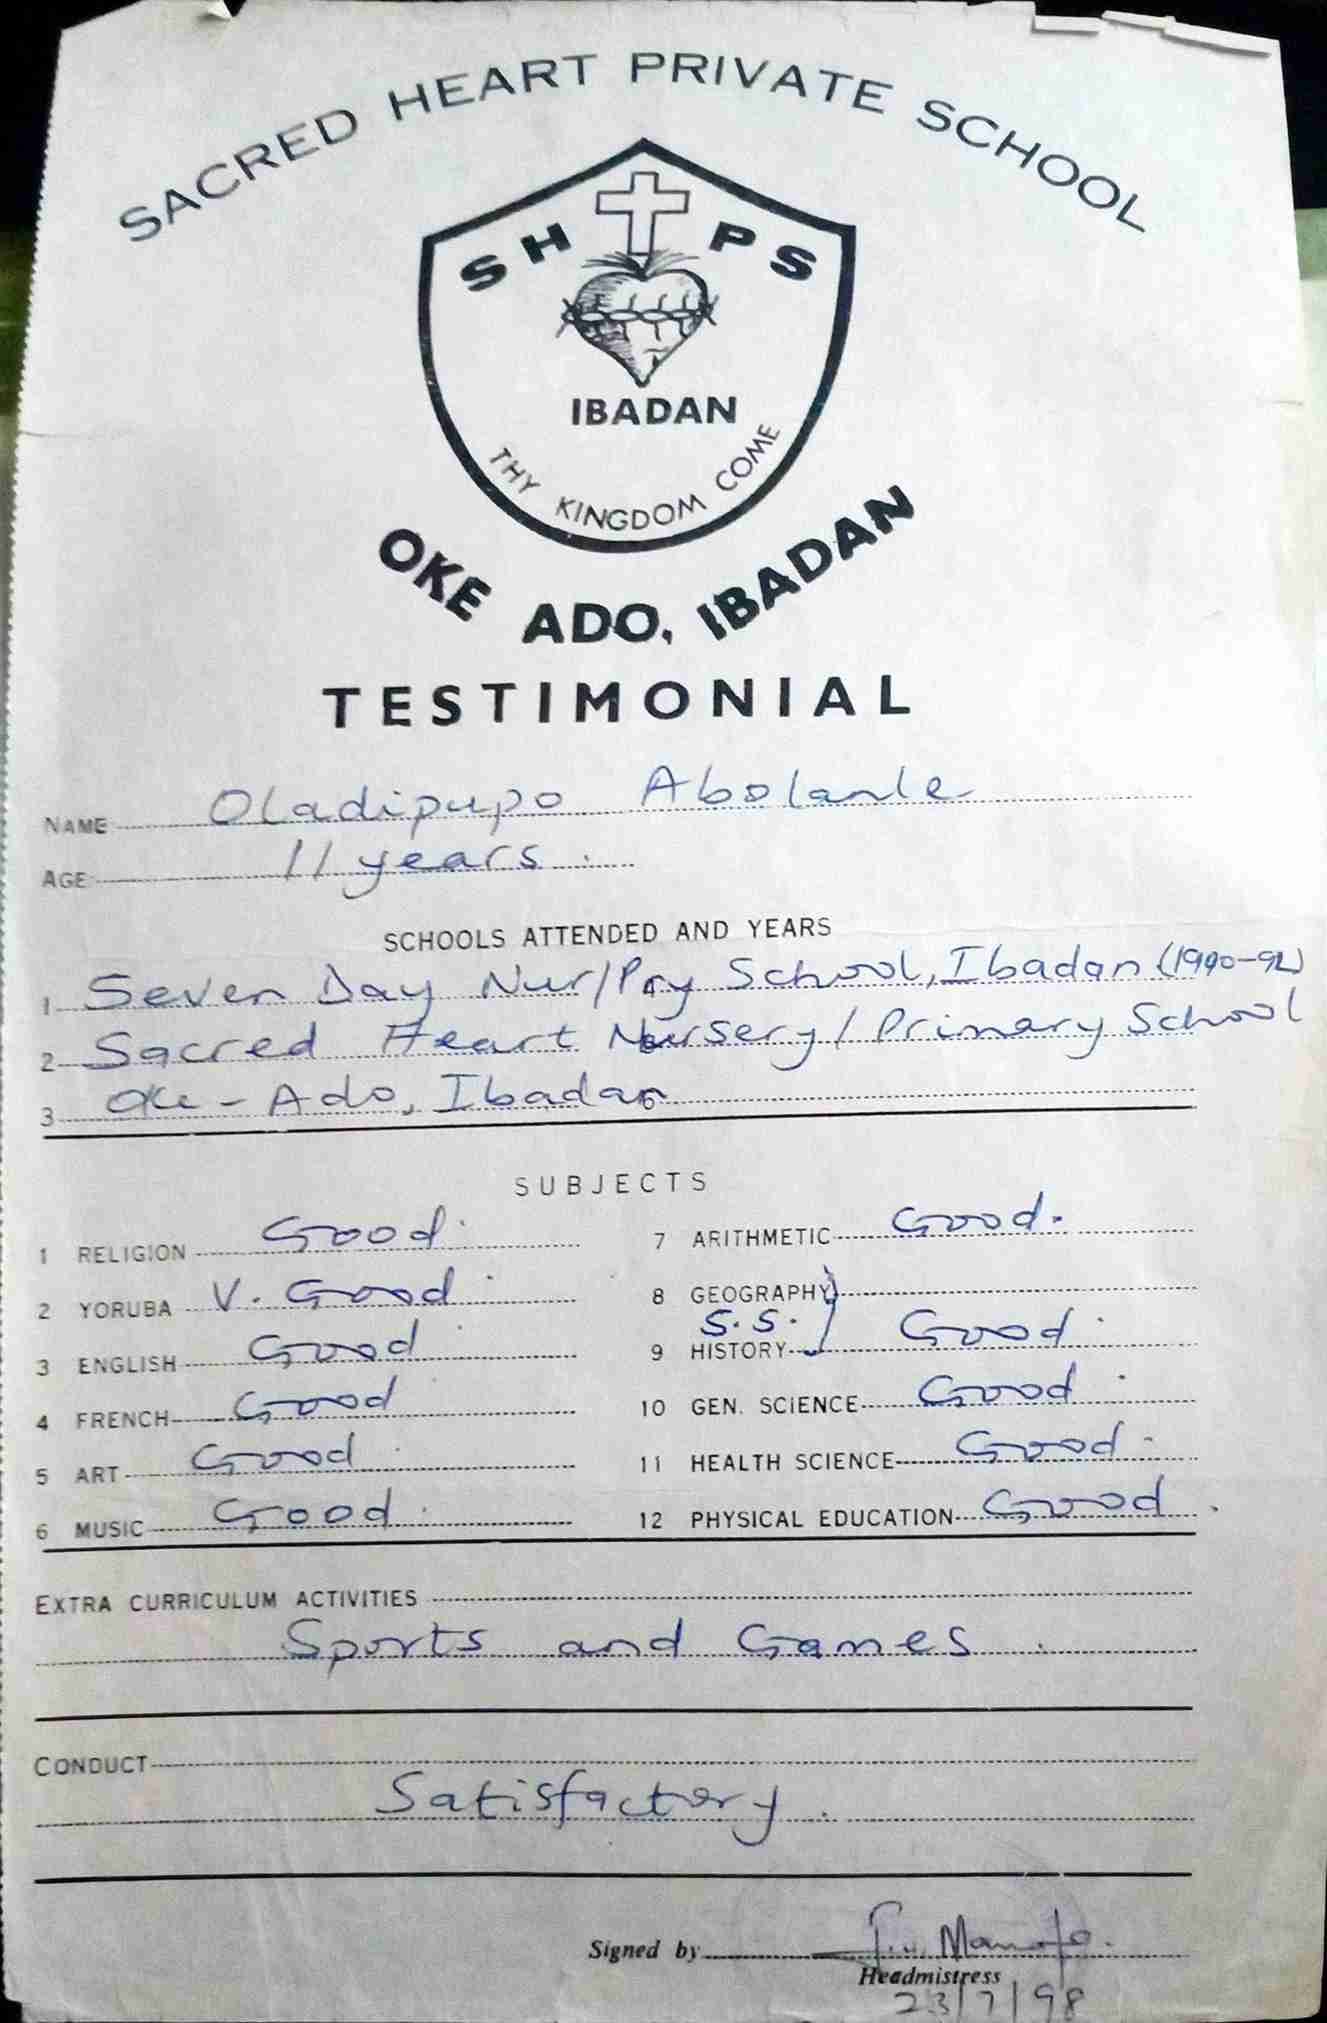 SACRED HEART PRIVATE SCHOOL
S H P S
IBADAN
THY KINGDOM COME
OKE ADO, IBADAN
TESTIMONIAL
NAME Oladipupo Abolanle
AGE 11 years.
SCHOOLS ATTENDED AND YEARS
1 Seven Day Nur/Pry School, Ibadan (1990-92)
2 Sacred Heart Nursery/Primary School
3 Oke-Ado, Ibadan
SUBJECTS
1 RELIGION Good.
2 YORUBA V. Good.
3 ENGLISH Good.
4 FRENCH Good
5 ART Good.
6 MUSIC Good.
7 ARITHMETIC Good.
8 GEOGRAPHY
S.S.
9 HISTORY Good.
10 GEN. SCIENCE Good.
11 HEALTH SCIENCE Good.
12 PHYSICAL EDUCATION Good.
EXTRA CURRICULUM ACTIVITIES
Sports and Games.
CONDUCT
Satisfactory.
Signed by
Headmistress
23/7/98